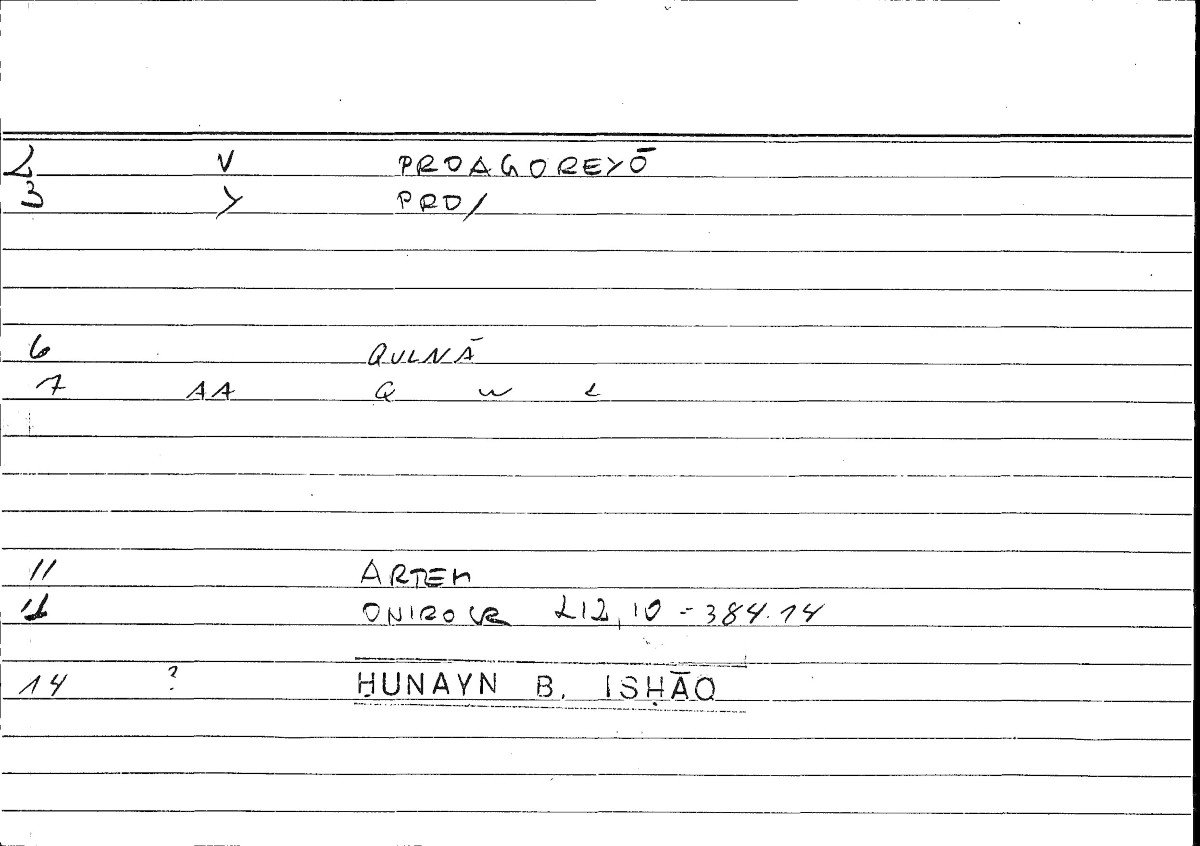 2 V PROAGOREYŌ
3 Y PRO/
6 QULNĀ
7 AA Q w L
11 ARTEM
12 ONIROCR 212,10 = 384.14
14 ? ḤUNAYN B. ISḤĀQ